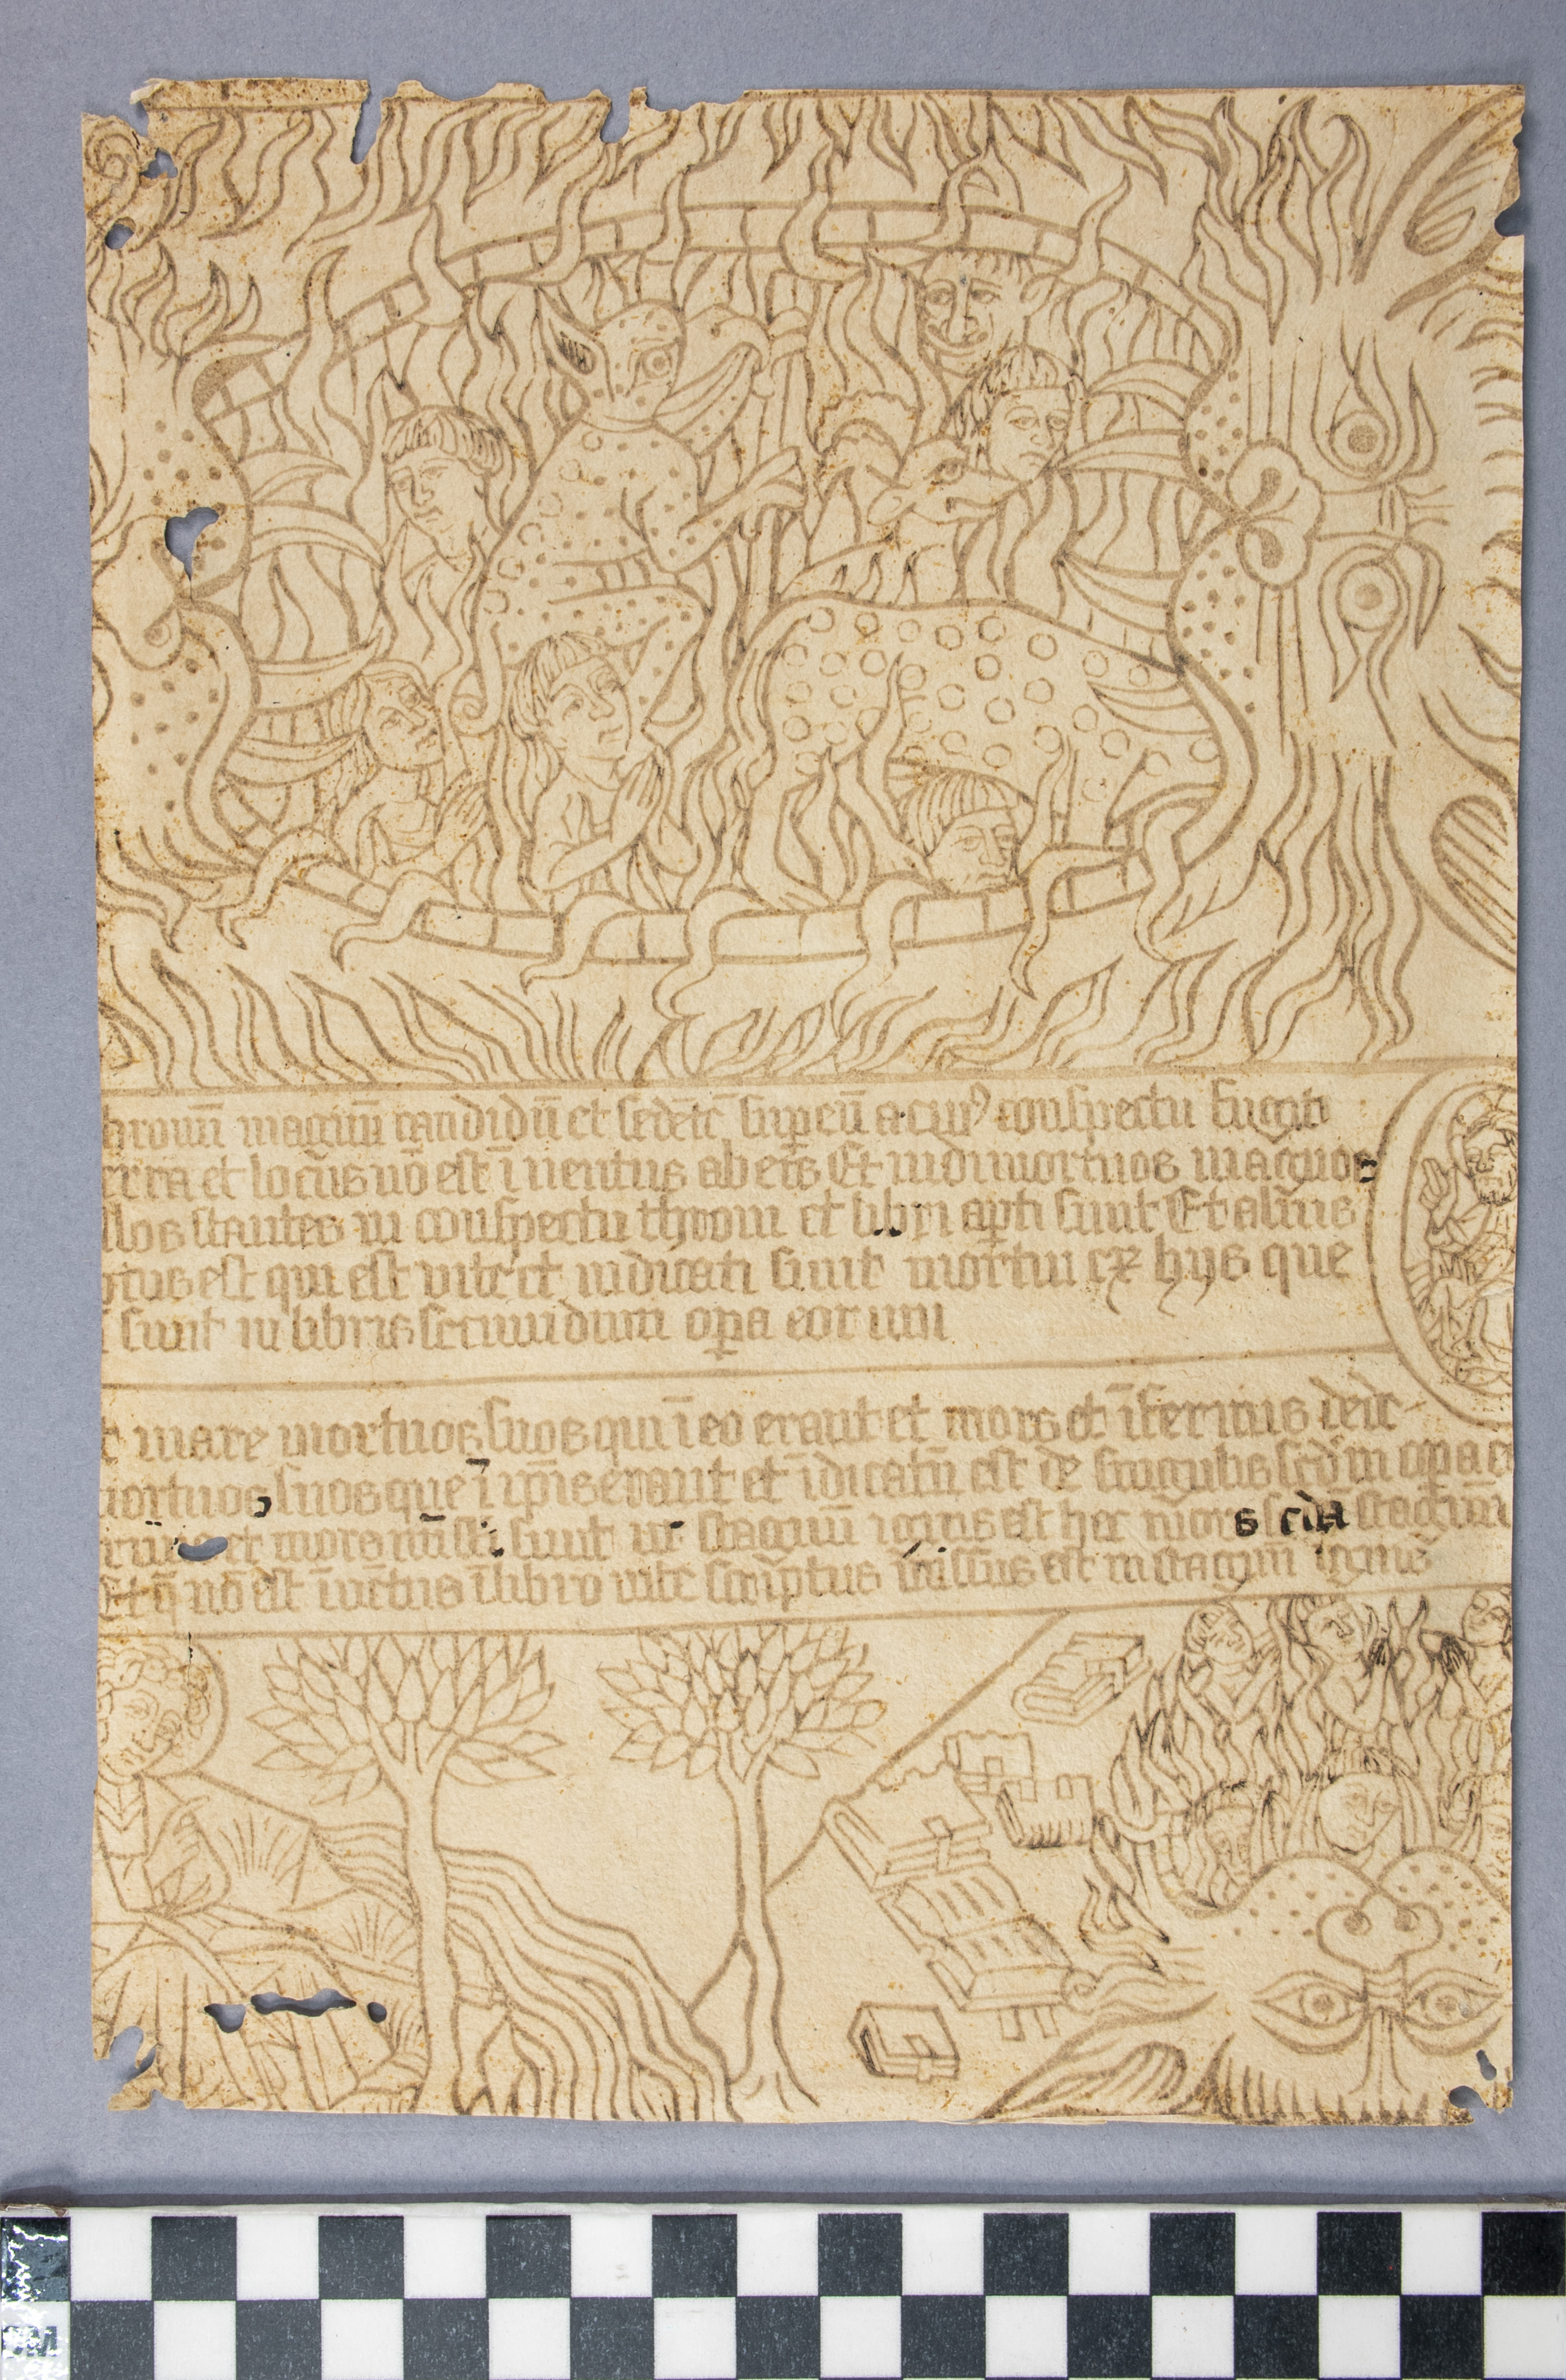 hronū magnū candidū et sedētē sup eū a cuiꝰ conspectu fugit
erra et locus nō est īuentus ab eis Et uidi mortuos magnos
llos stantes in conspectu throni et libri apti sunt Et alius
rtus est qui est vite et iudicati sunt mortui ex hijs que
sunt in libris secundum opa eorum
t mare mortuos suos qui ī eo erant et mors et īfernus dedc
ortuos suos que ī ipīs erant et īdicatū est de singulis scdm opa eo
et mors missi sunt in stagnū ignis est hec mors scda stagnū
Et q̄ nō est īuētus ī libro vite scriptus missus est in stagnū ignis